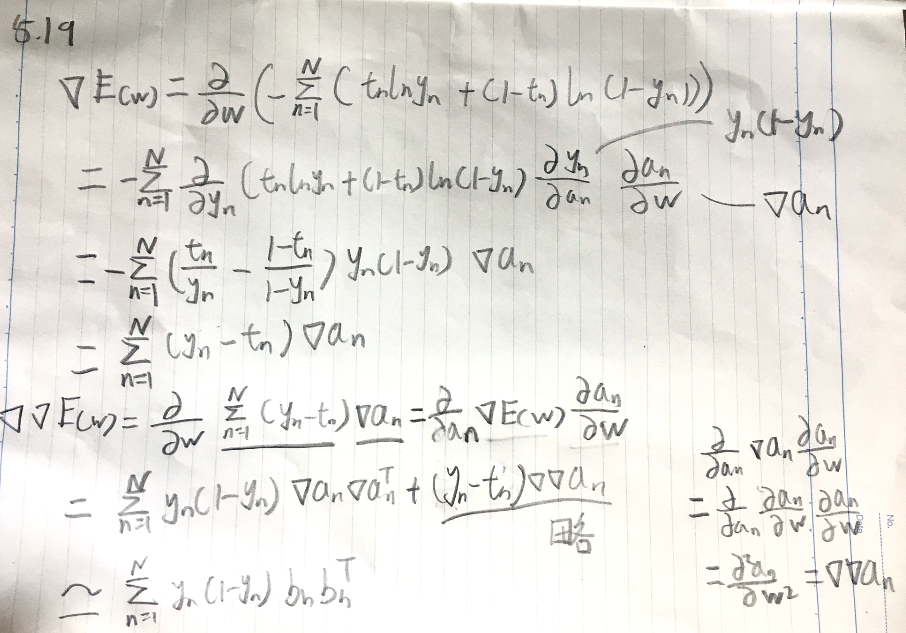 5.19
∇E(w) = ∂/∂w (-Σ_{n=1}^{N} (tn ln yn + (1-tn) ln (1-yn)))
yn(1-yn)
= -Σ_{n=1}^{N} ∂/∂yn (tn ln yn + (1-tn) ln (1-yn)) ∂yn/∂an ∂an/∂w — ∇an
= -Σ_{n=1}^{N} (tn/yn - (1-tn)/(1-yn)) yn(1-yn) ∇an
= Σ_{n=1}^{N} (yn - tn) ∇an
∇∇E(w) = ∂/∂w Σ_{n=1}^{N} (yn-tn) ∇an = ∂/∂an ∇E(w) ∂an/∂w
= Σ_{n=1}^{N} yn(1-yn) ∇an∇an^T + (yn-tn)∇∇an
略
≃ Σ_{n=1}^{N} yn(1-yn) bn bn^T
∂/∂an ∇an ∂an/∂w
= ∂/∂an ∂an/∂w · ∂an/∂w
= ∂²an/∂w² = ∇∇an
No.